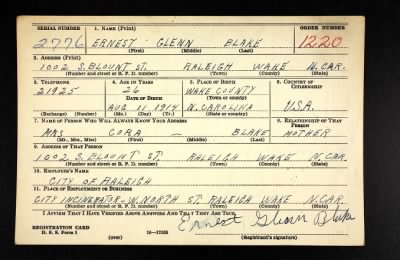 SERIAL NUMBER 1. NAME (Print) ORDER NUMBER
2776 ERNEST GLENN BLAKE 1220
(First) (Middle) (Last)
2. ADDRESS (Print)
1002 S. BLOUNT ST. RALEIGH WAKE N. CAR.
(Number and street or R. F. D. number) (Town) (County) (State)
3. TELEPHONE 4. AGE IN YEARS 5. PLACE OF BIRTH 6. COUNTRY OF CITIZENSHIP
21925 26 WAKE COUNTY
DATE OF BIRTH (Town or county)
AUG 11 1914 N. CAROLINA U.S.A.
(Exchange) (Number) (Mo.) (Day) (Yr.) (State or country)
7. NAME OF PERSON WHO WILL ALWAYS KNOW YOUR ADDRESS 8. RELATIONSHIP OF THAT PERSON
MRS CORA — BLAKE MOTHER
(Mr., Mrs., Miss) (First) (Middle) (Last)
9. ADDRESS OF THAT PERSON
1002 S. BLOUNT ST. RALEIGH WAKE N. CAR.
(Number and street or R. F. D. number) (Town) (County) (State)
10. EMPLOYER'S NAME
CITY OF RALEIGH
11. PLACE OF EMPLOYMENT OR BUSINESS
CITY INCINERATOR - W. NORTH ST. RALEIGH WAKE N. CAR.
(Number and street or R. F. D. number) (Town) (County) (State)
I AFFIRM THAT I HAVE VERIFIED ABOVE ANSWERS AND THAT THEY ARE TRUE.
Ernest Glenn Blake
REGISTRATION CARD
D. S. S. Form 1 (over) 16—17105 (Registrant's signature)